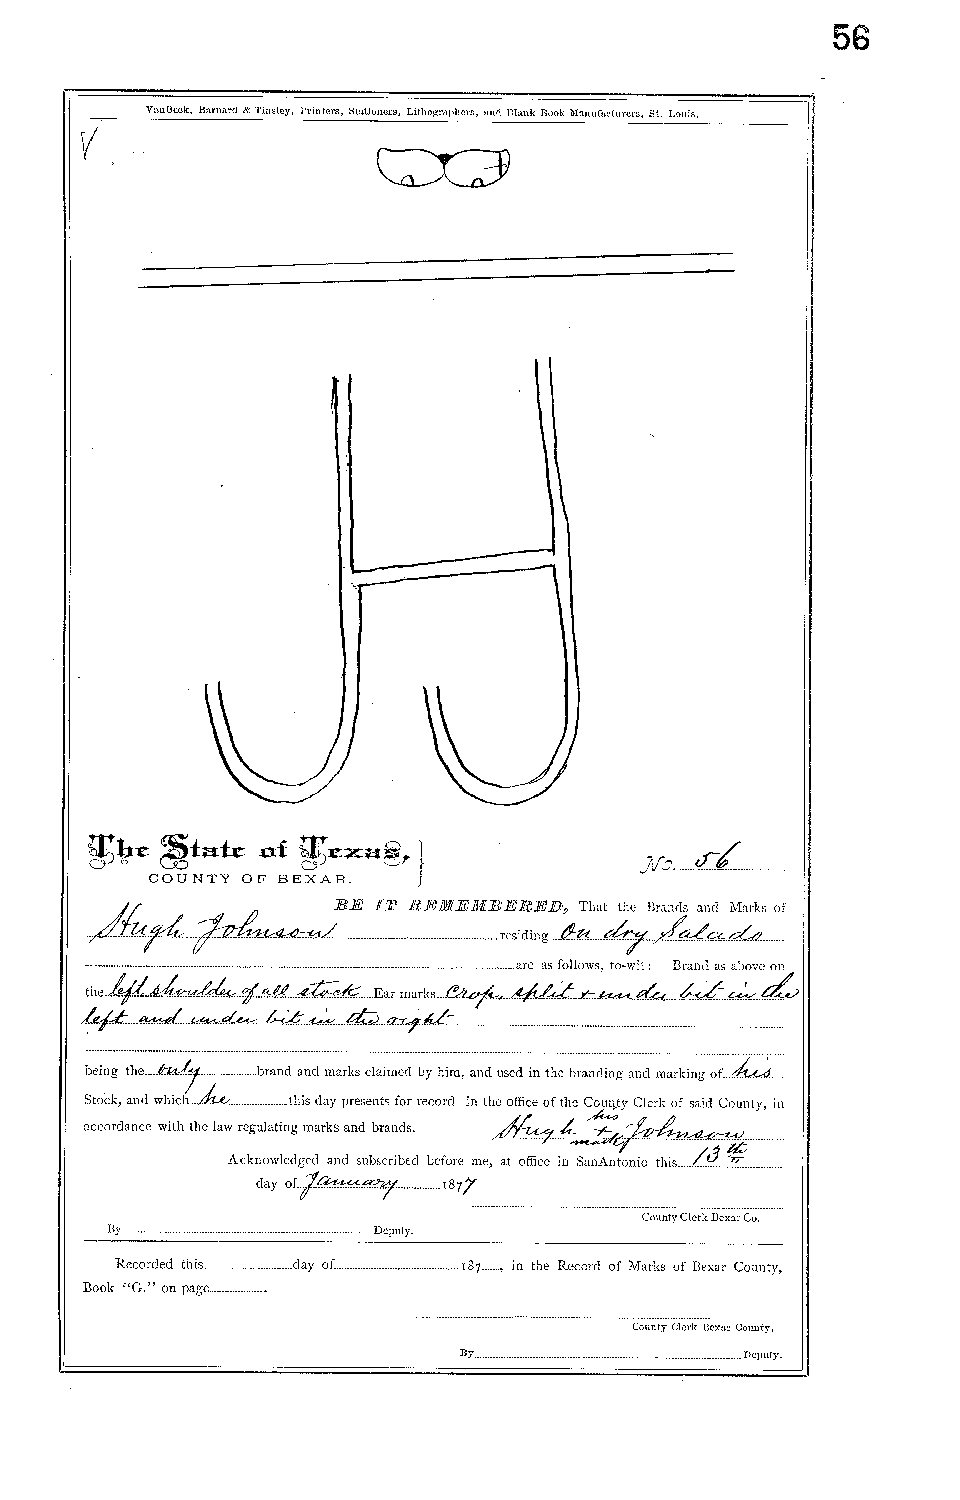 56
VanBeek, Barnard & Tinsley, Printers, Stationers, Lithographers, and Blank Book Manufacturers, St. Louis.
The State of Texas,
COUNTY OF BEXAR.
No. 56
BE IT REMEMBERED, That the Brands and Marks of
Hugh Johnson residing on dry Salado
are as follows, to-wit: Brand as above on
the left shoulder of all stock Ear marks crop, split + under bit in the
left and under bit in the right
being the only brand and marks claimed by him, and used in the branding and marking of his
Stock, and which he this day presents for record in the office of the County Clerk of said County, in
accordance with the law regulating marks and brands. Hugh his + mark Johnson
Acknowledged and subscribed before me, at office in San Antonio this 13th
day of January 1877
County Clerk Bexar Co.
By Deputy.
Recorded this day of 187 , in the Record of Marks of Bexar County,
Book "G." on page .
County Clerk Bexar County,
By Deputy.